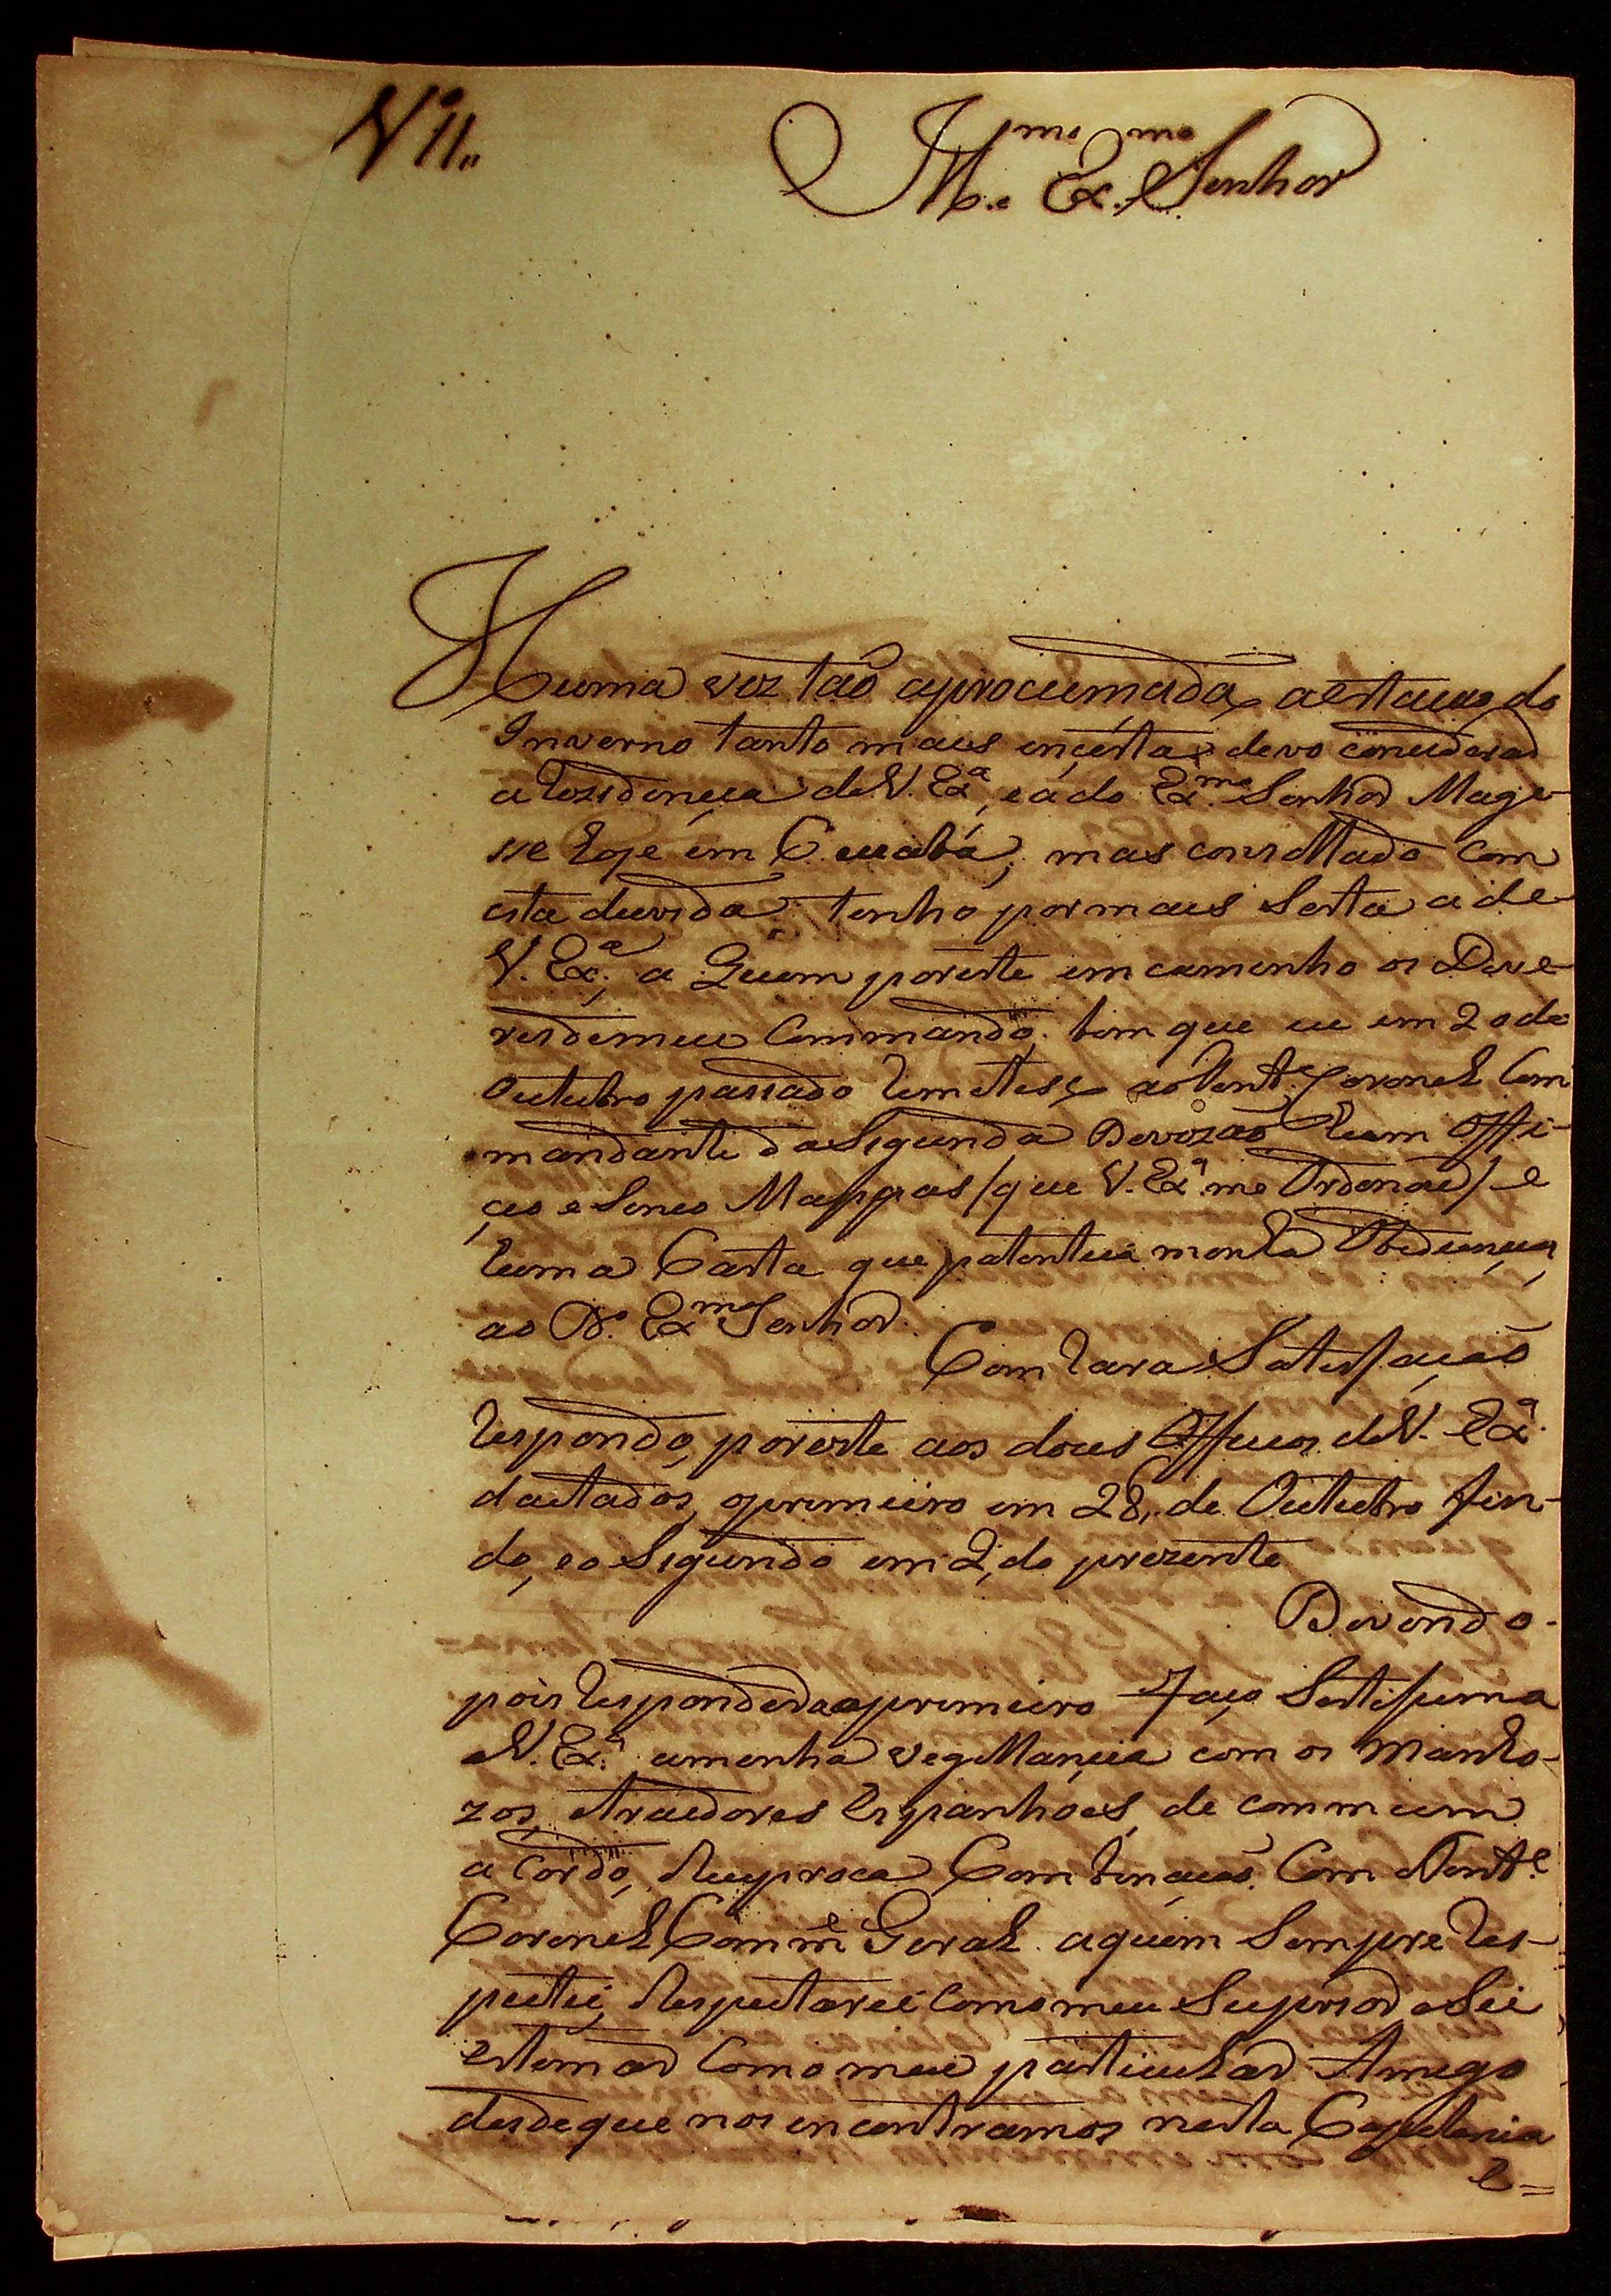 Nº 11,,
Ill.mo Ex.mo Senhor
Huma vez taõ aprocimada a estacaõ do
Inverno tanto mais incérta devo conciderar
a rezidençia de V. Ex.ª, e a do Ex.mo Senhor Mage-
sse hoje em Cuiabá; mas
esta duvida tenho por mais Serta a de
V. Ex.ª, a Quem por este emcaminho os Deve-
res de meu Commando. bem que eu em 20 de
Outubro passado remetese ao Tent.e Coronel Com
mandante da Segunda Devizaõ hum Offi-
çio e Sinco Mappas /que V. Ex.ª me Ordenou/ e
huma Carta que patenteia minha Obediençia,
ao D.º Ex.mo Senhor.
Com rara Satisfaçaõ
respondo, por este aos dous Officios de V. Ex.ª
dactados, o primeiro em 28, de Outubro fin-
do, e o Segundo em 2, do prezente
Devendo-
pois responder ao primeiro Faço Sertissima
a V. Ex.ª a minha vegillançia com os manho-
zos, e traidores Espanhoes, de commum
a Cordo, Reciproca Combinaçaõ Com o Tent.e
Coronel Comm.e Geral. a quem Sempre res-
peitei, Respeitarei Como meu Superior e Sei
estimar Como meu particular Amigo
desde que nos encontramos nesta Capitania
e=